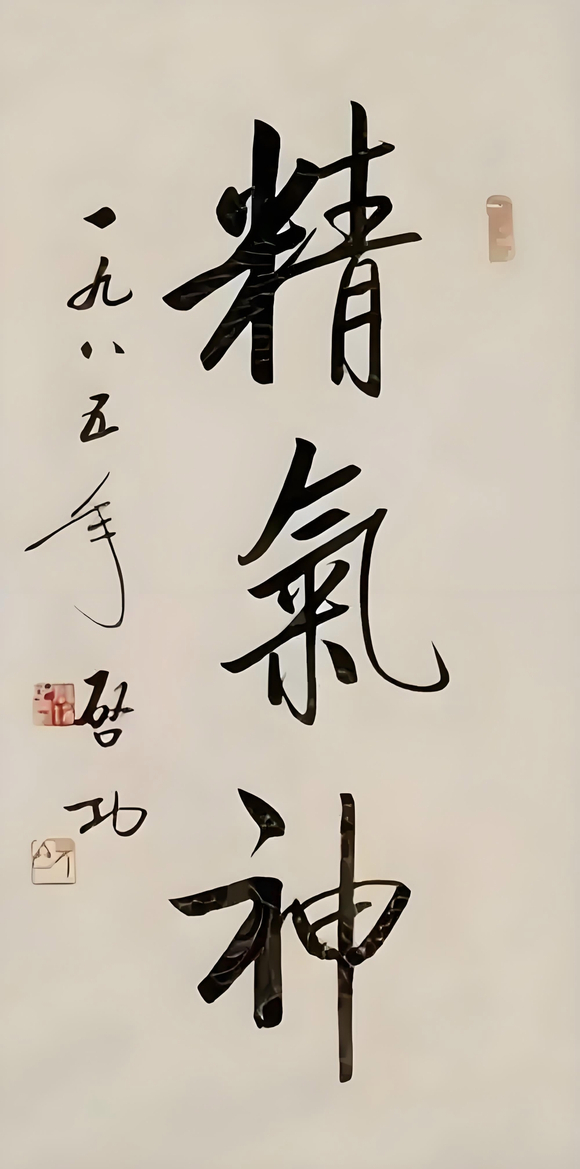 精氣神
一九八五年
啓功